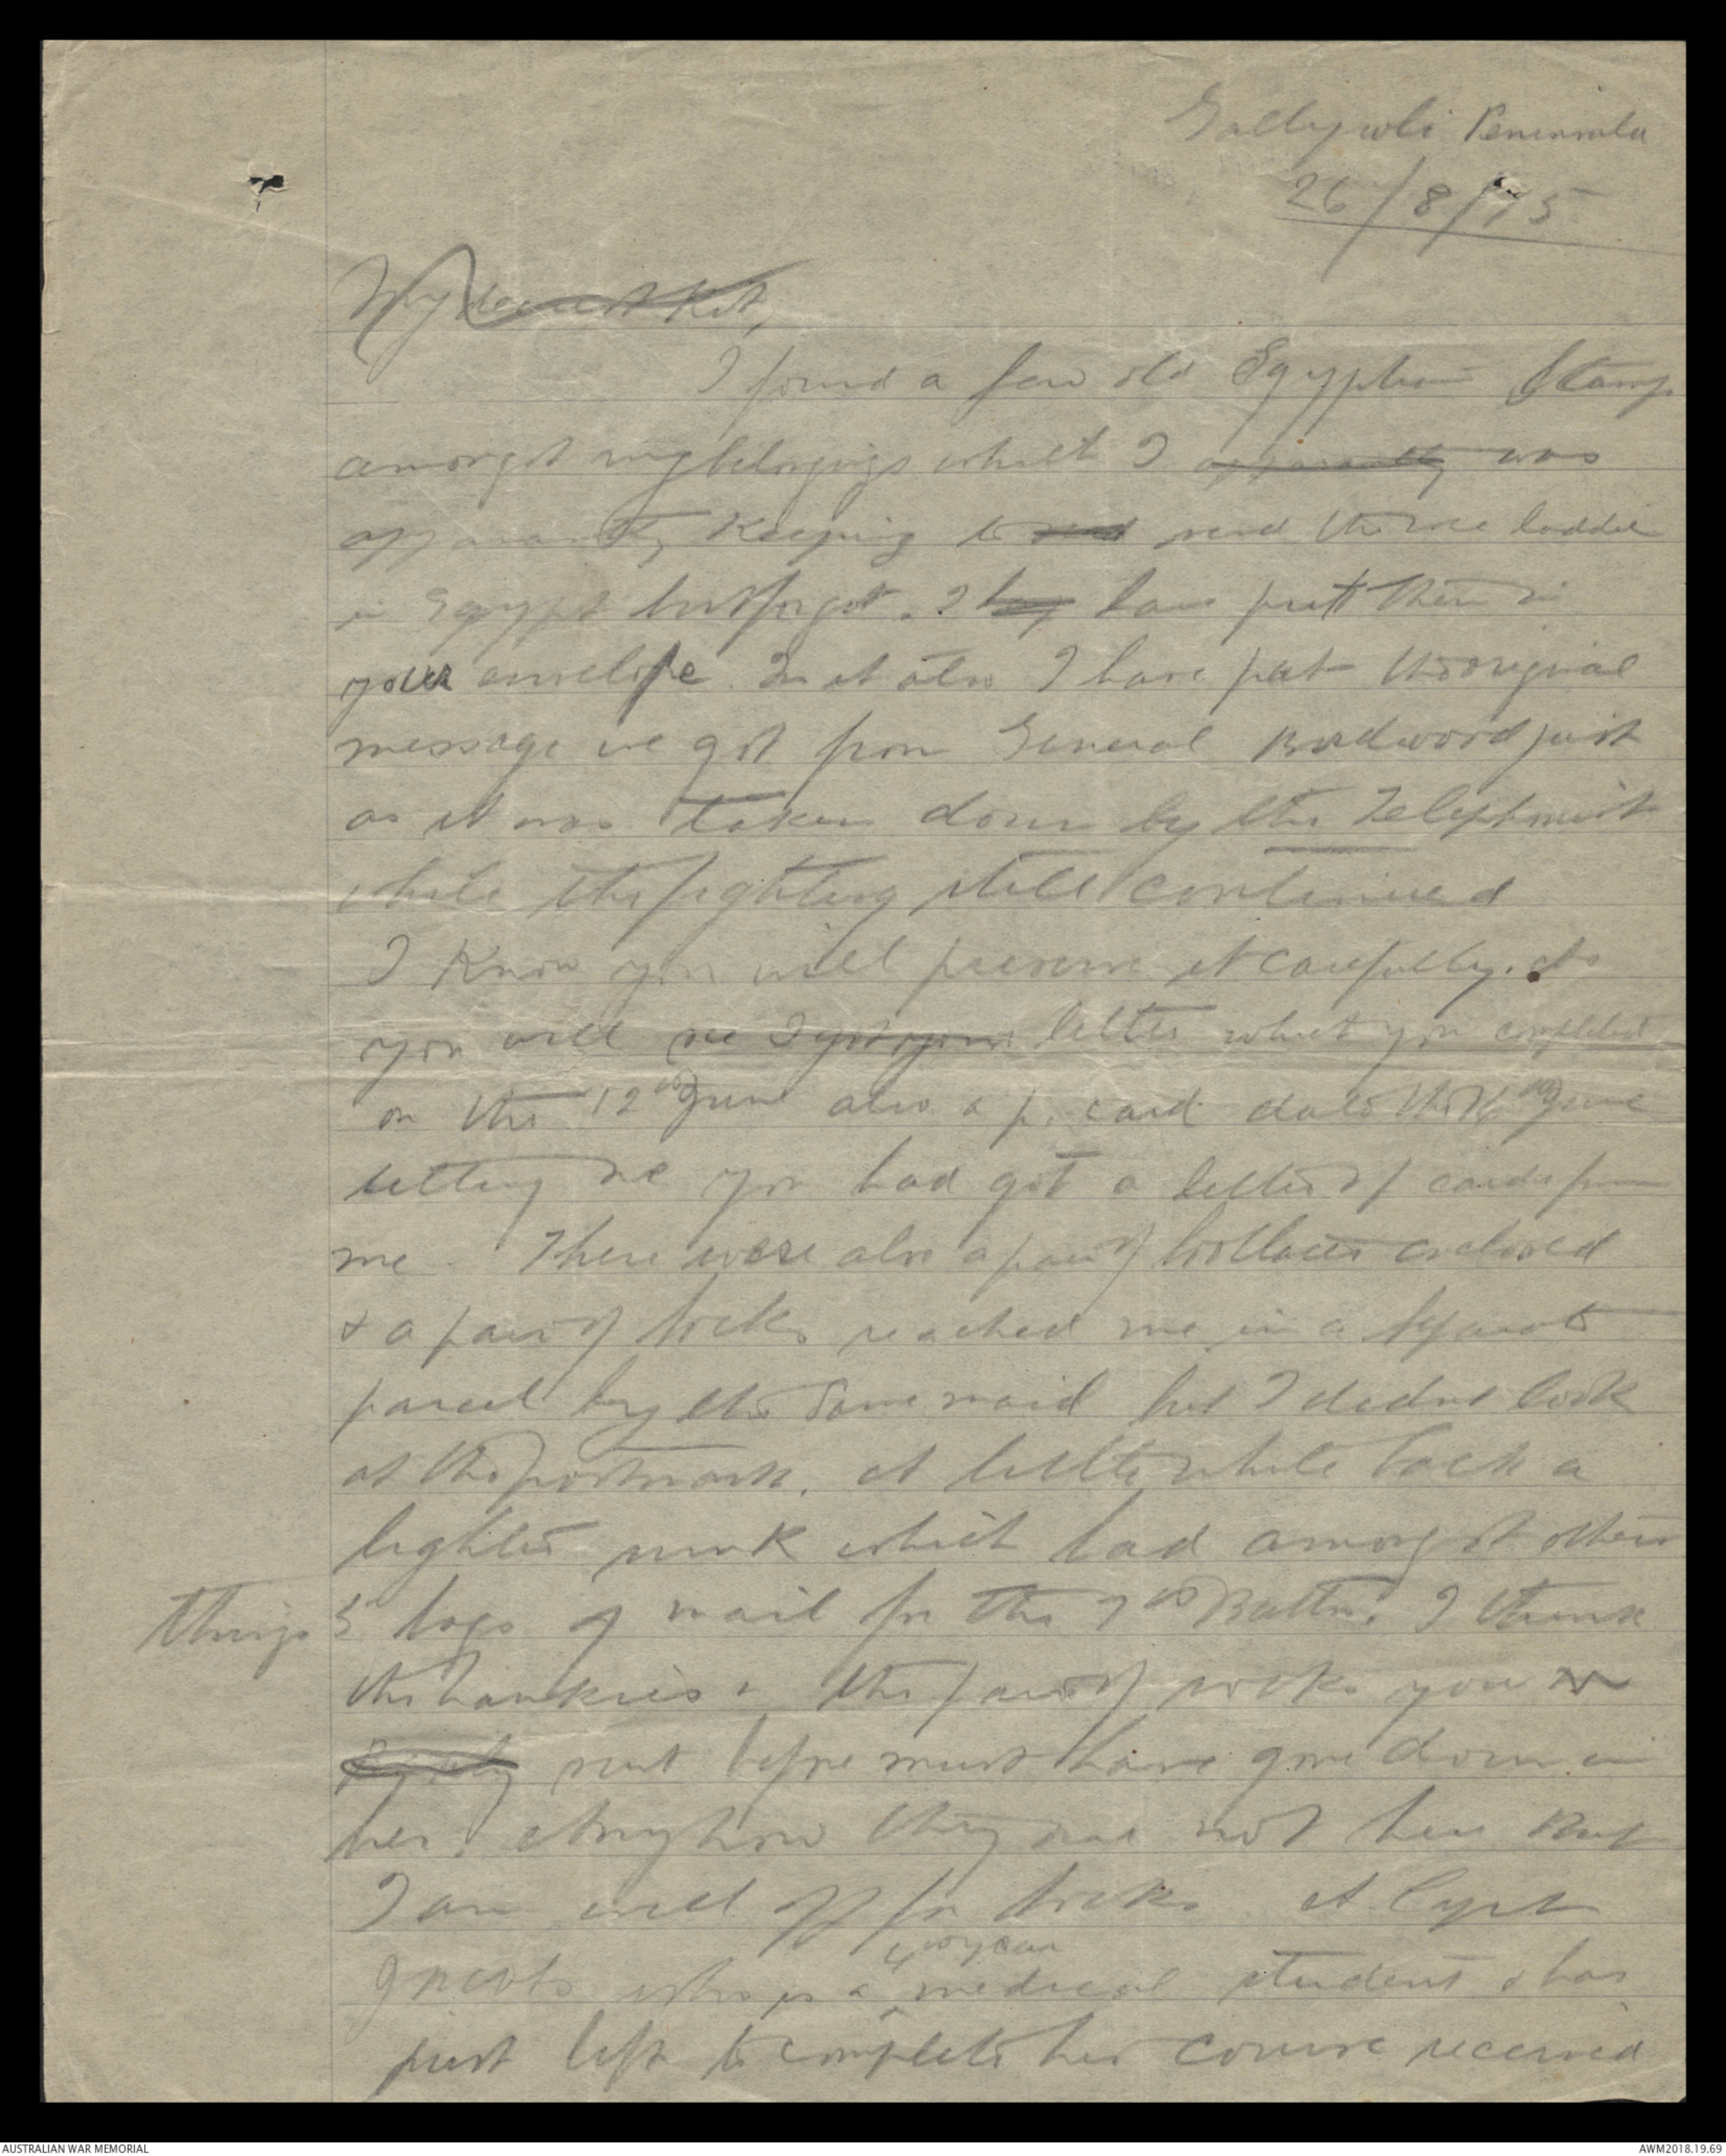 Gallipoli Peninsula
26/8/15
My dearest Kit,
I found a few old Egyptian Stamps
amongst my belongings which I apparently was
apparently keeping to send send the wee laddie
in Egypt but forgot. I hav have put them in
your envelope. In it also I have put the original
message we got from General Birdwood just
as it was taken down by the Telephonist
while the fighting still continued
I know you will preserve it carefully. As
you will see I got your letter which you completed
on the 12th June also a p. card dated the 16th June
letting me you had got a letter & cards from
me. There were also a pair of bootlaces enclosed
& a pair of socks reached me in a separate
parcel by the same mail but I didn't look
at the postmark. A little while back a
lighter sunk which had amongst other
things 5 bags of mail for the 7th Battn. I think
the hankies & the pair of socks you
sent before must have gone down in
her. Anyhow they are not here But
I am well off for socks. A Capt
Jacobs who is a 4th year medical student & has
just left to complete his course received